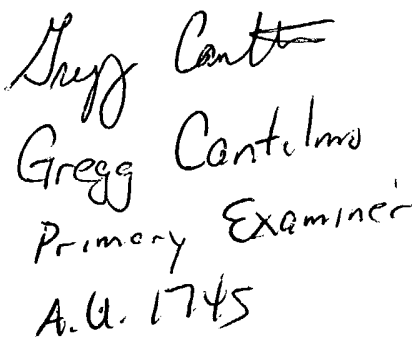 Gregg Cantelmo
Gregg Cantelmo
Primary Examiner
A.U. 1745